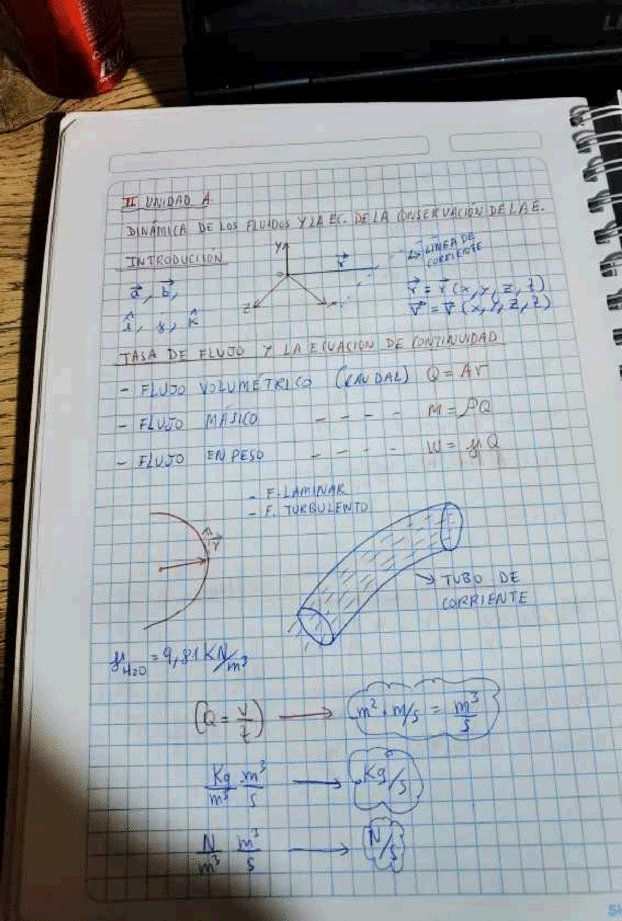 II UNIDAD A.
DINÁMICA DE LOS FLUIDOS Y LA EC. DE LA CONSERVACIÓN DE LA E.
INTRODUCCIÓN
Y
LINEA DE
CORRIENTE
a⃗, b⃗,
v⃗ = v⃗ (x, y, z, t)
Z
î, ĵ, k̂
TASA DE FLUJO Y LA ECUACIÓN DE CONTINUIDAD
- FLUJO VOLUMÉTRICO (CAUDAL) Q = Av
- FLUJO MÁSICO - - - - M = ρQ
- FLUJO EN PESO - - - - W = γQ
- F. LAMINAR
- F. TURBULENTO
TUBO DE
CORRIENTE
γH2O = 9,81 KN/m³
(Q = V/t) → m² · m/s = m³/s
Kg/m³ m³/s → Kg/s
N/m³ m³/s → N/s